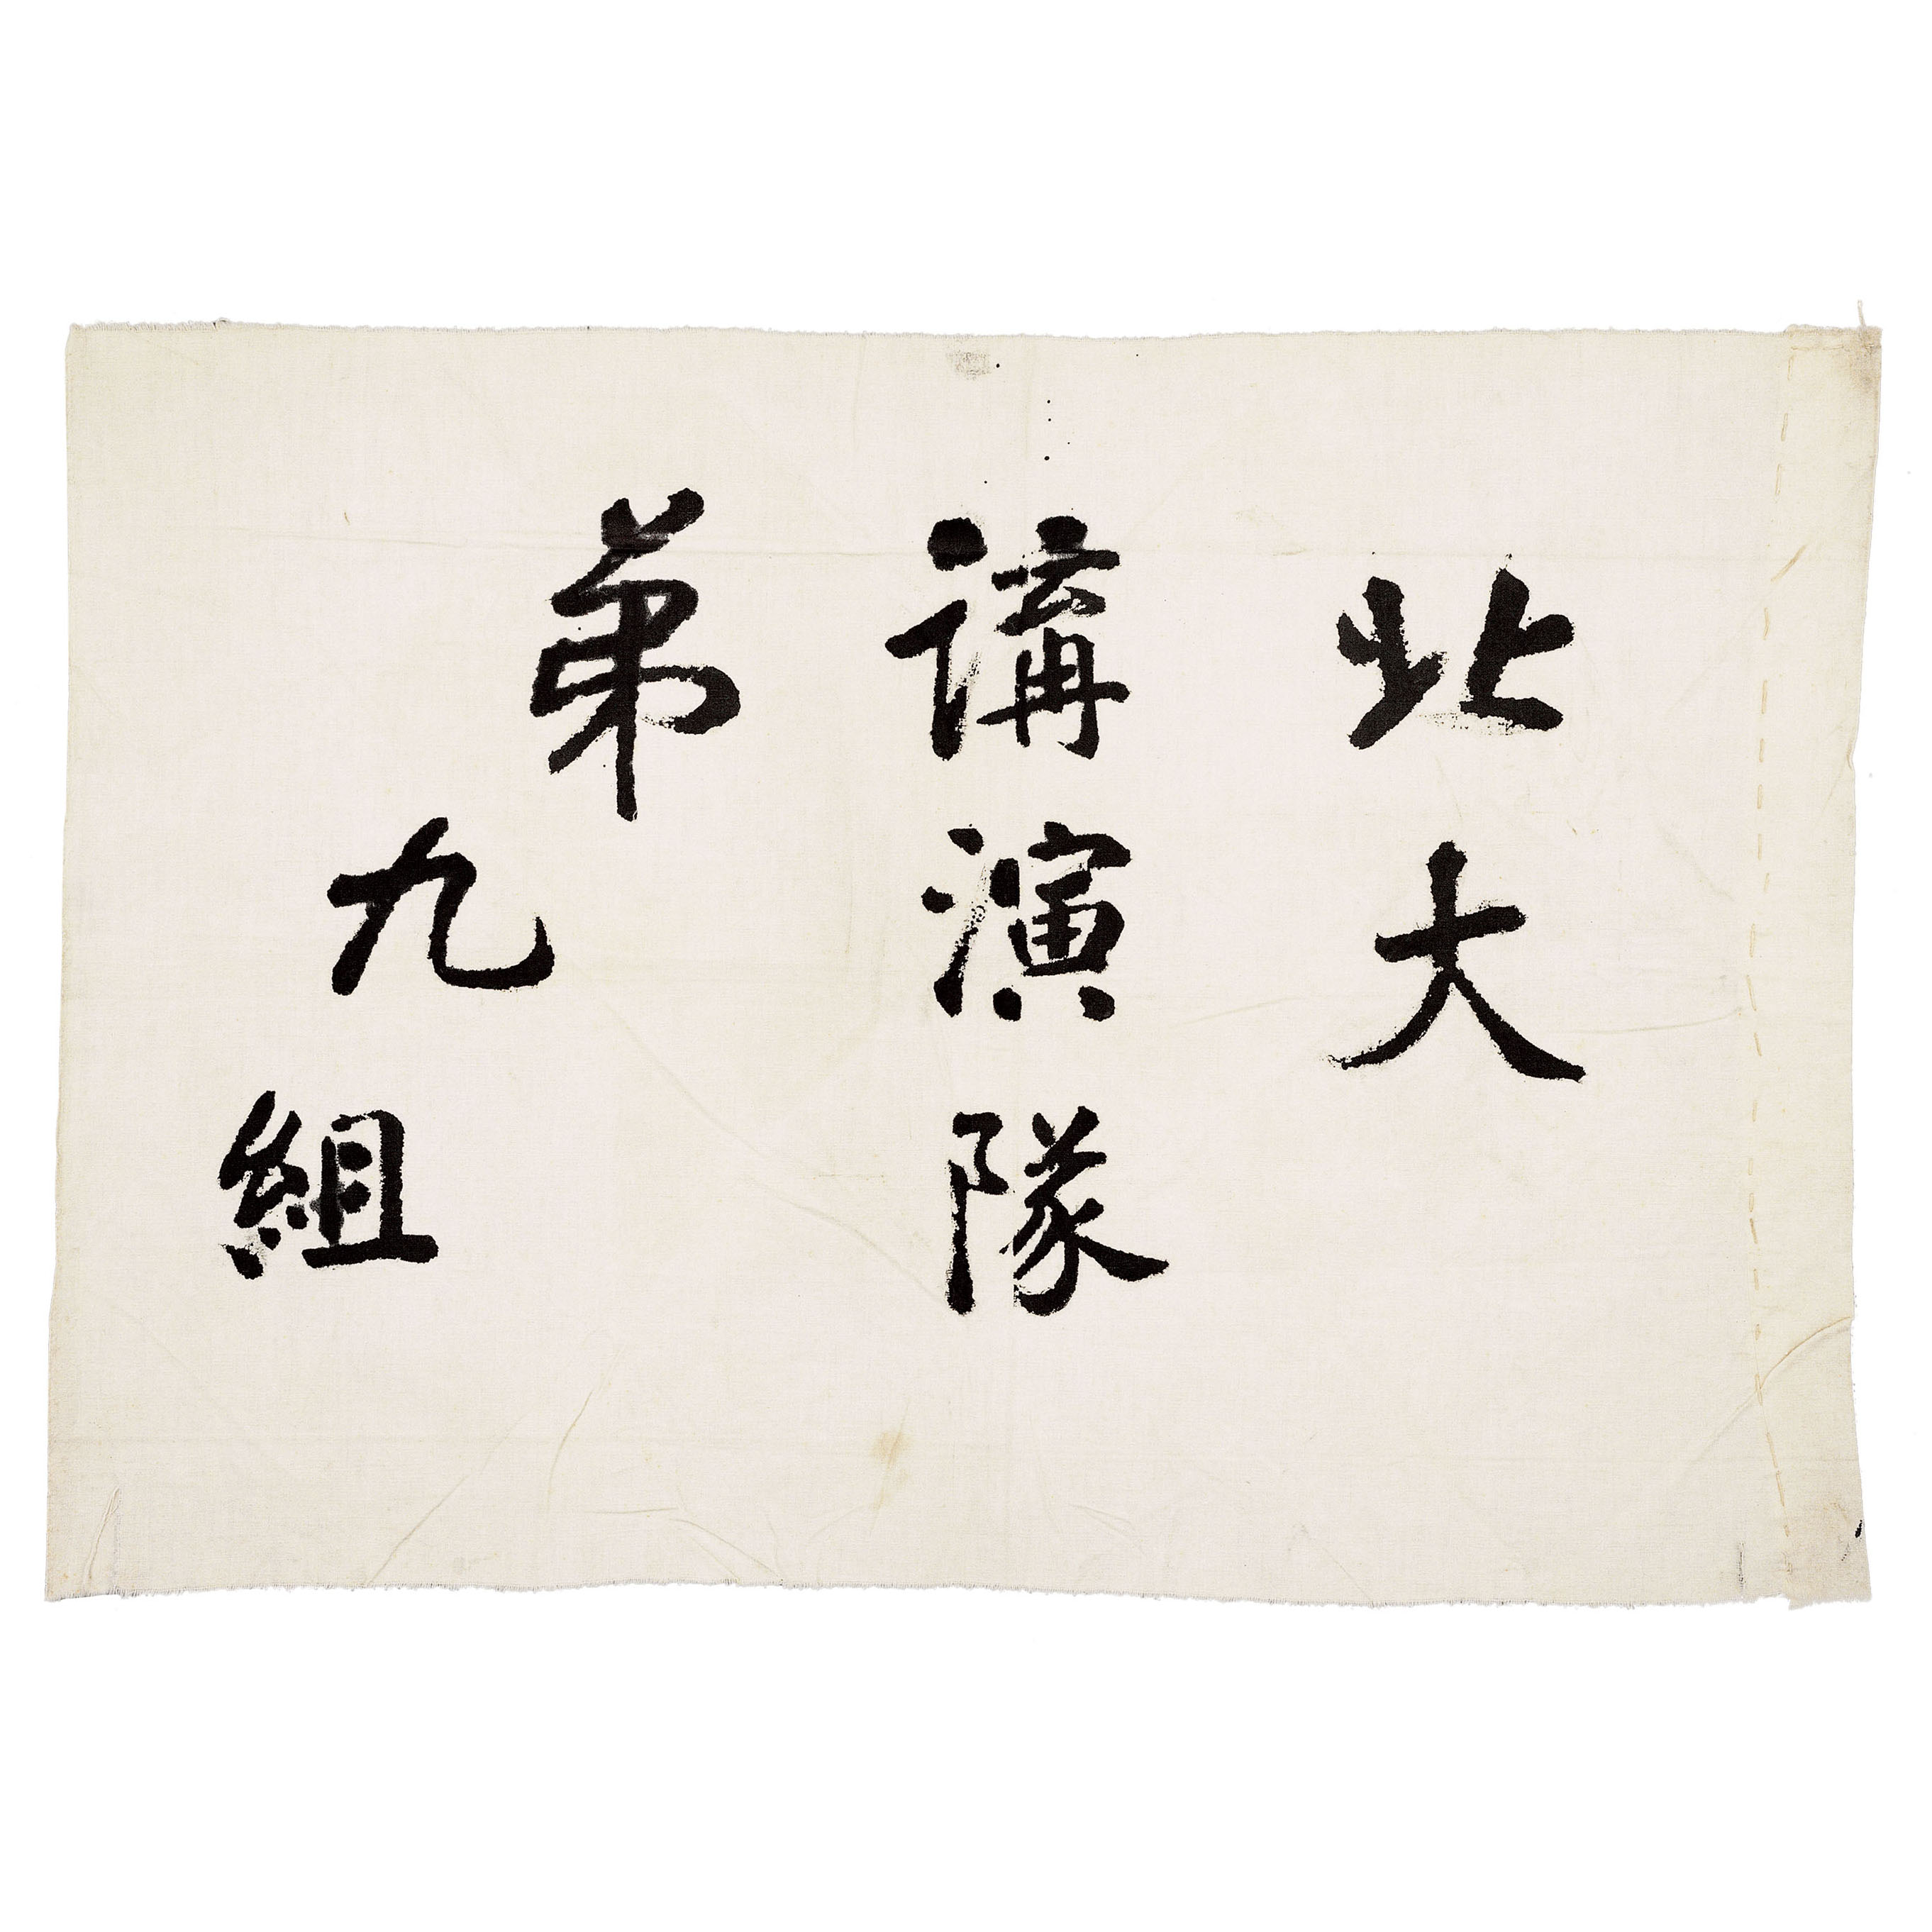 北大
講演隊
弟九組